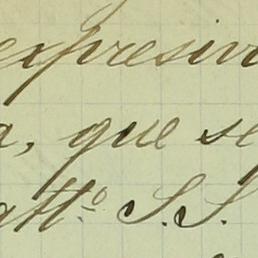 expresiv
a, que se
atto. S.S.